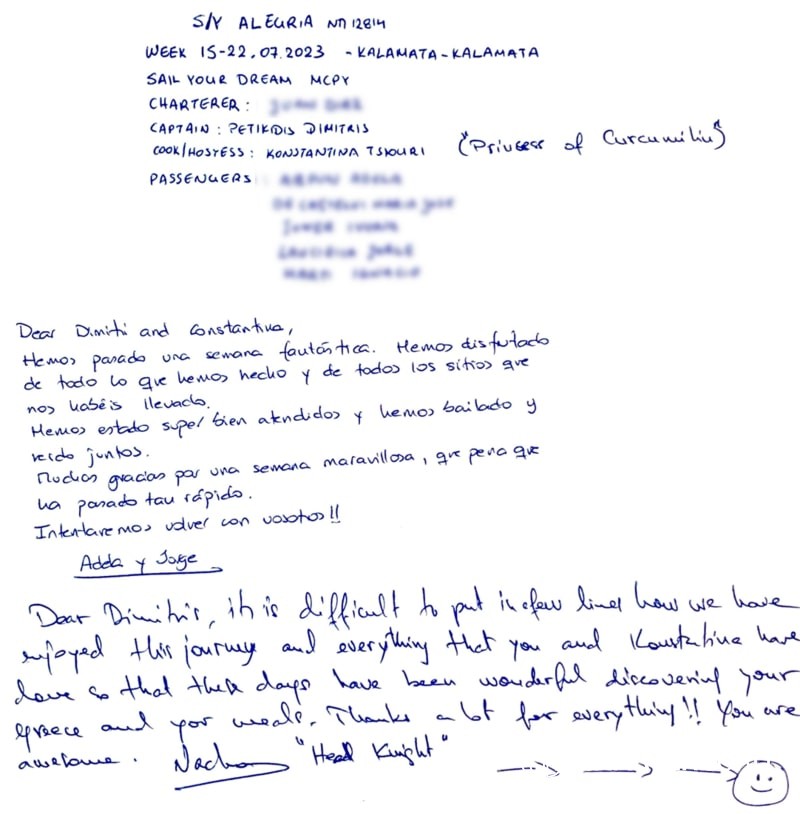 S/Y ALEGRIA NΠ 12814
WEEK 15-22.07.2023 - KALAMATA - KALAMATA
SAIL YOUR DREAM MCPY
CHARTERER:
CAPTAIN: PETIKIDIS DIMITRIS
COOK/HOSTESS: KONSTANTINA TSIOURI ("Princess of Curcumilius")
PASSENGERS:
Dear Dimitri and Constantina,
Hemos pasado una semana fantástica. Hemos disfrutado
de todo lo que hemos hecho y de todos los sitios que
nos habéis llevado.
Hemos estado super bien atendidos y hemos bailado y
reido juntos.
Muchas gracias por una semana maravillosa, que pena que
ha pasado tan rápido.
Intentaremos volver con vosotros!!
Adda y Jorge
Dear Dimitris, it is difficult to put in few lines how we have
enjoyed this journey and everything that you and Konstantina have
done so that these days have been wonderful discovering your
greece and yor meals. Thanks a lot for everything!! You are
awesome. Nacho "Head Knight"